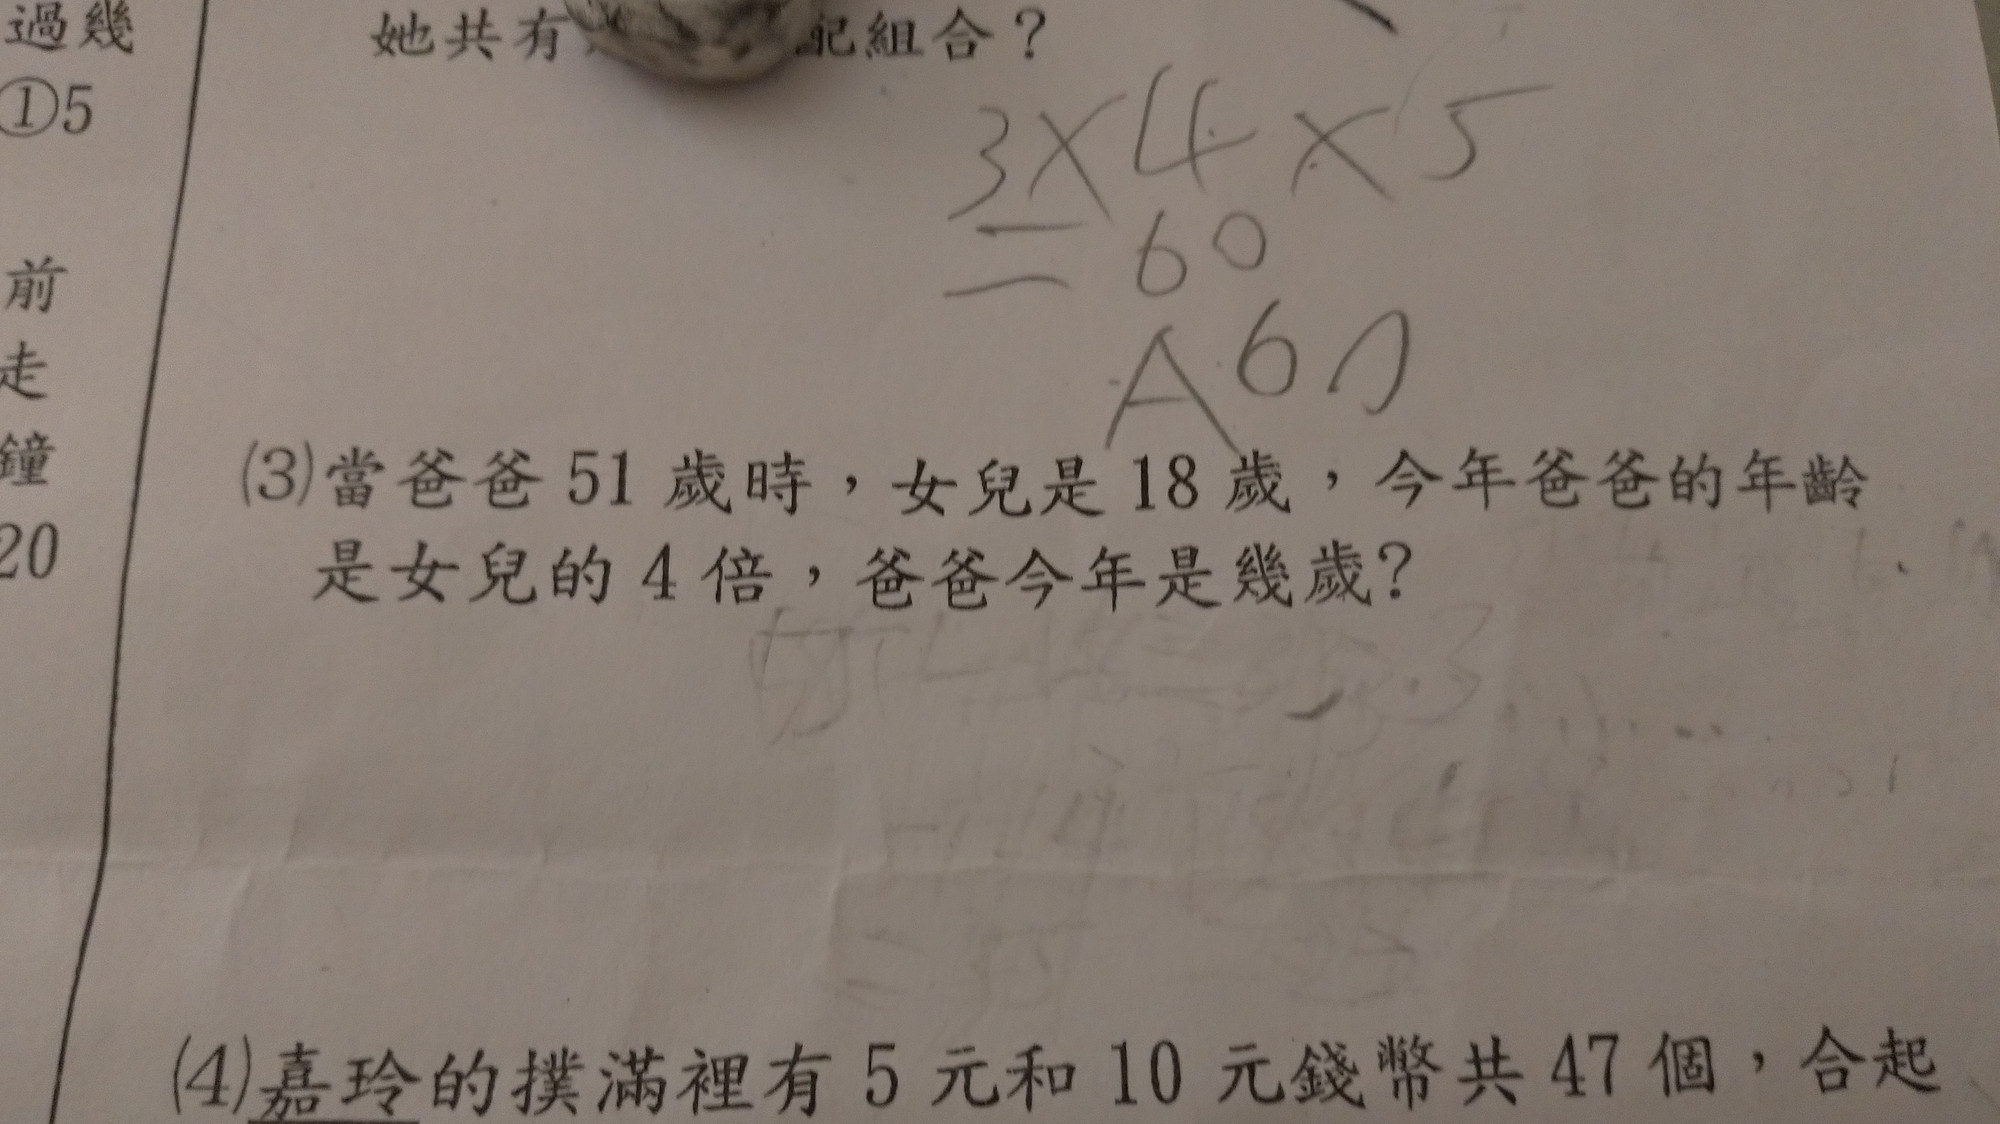 過幾
①5
前
走
鐘
20
她共有
配組合？
3×4×5
=60
A60
(3)當爸爸 51 歲時，女兒是 18 歲，今年爸爸的年齡
是女兒的 4 倍，爸爸今年是幾歲？
(4)嘉玲的撲滿裡有 5 元和 10 元錢幣共 47 個，合起